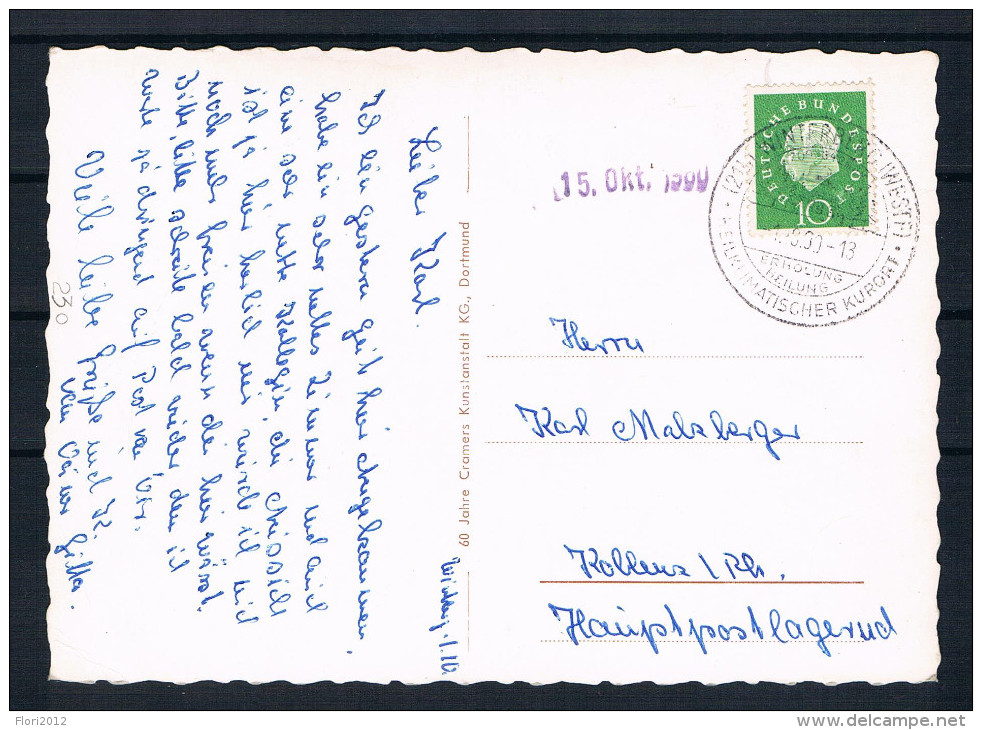 Winterbg. 1.10.
Lieber Karl.
Ich bin gestern gut hier angekommen,
habe ein sehr nettes Zimmer und auch
eine sehr nette Kollegin, die Aussicht
ist ja hier herlich nur würde ich mich
noch mehr freuen wenn du hier wärst.
Bitte, bitte schreibe bald wieder den ich
warte ja dringend auf Post von Dir.
Viele liebe Grüße und K.
von Deiner Gitta.
230
60 Jahre Cramers Kunstanstalt KG., Dortmund
15. Okt. 1960
DEUTSCHE BUNDESPOST
10
(21b) WINTERBERG (WESTF)
-13
ERHOLUNG
HEILUNG
HEILKLIMATISCHER KURORT
Herrn
Karl Malzberger
Koblenz / Rh.
Hauptpostlagernd
Flori2012
delcampe.net